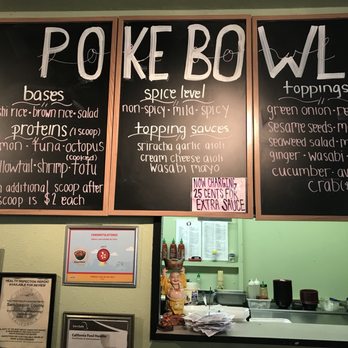 POKE BOWL
bases
shi rice · brown rice · salad
proteins (1 scoop)
mon · tuna · octopus
(cooked)
llowtail · shrimp · tofu
n additional scoop after
scoop is $2 each
spice level
non-spicy · mild · spicy
topping sauces
sriracha garlic aioli
cream cheese aioli
wasabi mayo
NOW CHARGING
25 CENTS FOR
EXTRA SAUCE
toppings
green onion · re
sesame seeds · m
seaweed salad · m
ginger · wasabi ·
cucumber · av
crab(
CONGRATULATIONS!
California Food Handler